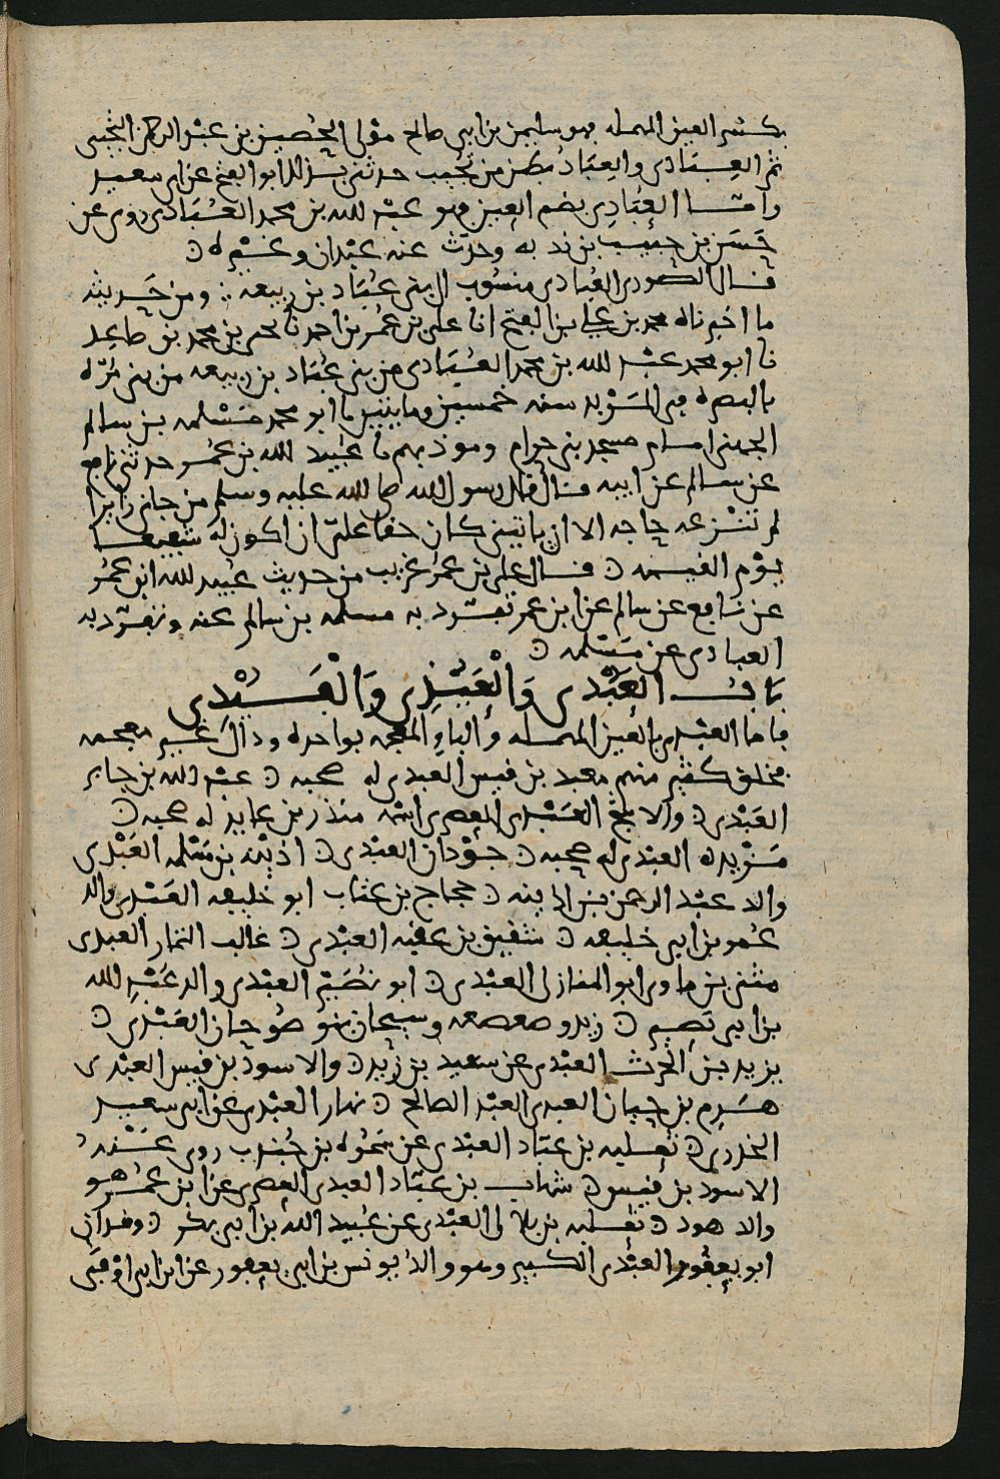 بكسر العين المهمله فهو سليمن بن ابي صالح مولى الحصين بن عبد الرحمن التجيبي
ثم العِبَادى والعِبَادُ بطن من تُجِيب حدثني بذلك ابو الفتح عن ابي سعيد
وامّا العُبَادِى بضم العين فهو عبد الله بن محمد العُبَادى روى عن
حَسَن بن حبيب بن ندبه وحدّث عنه عبْدان وغيْره ۞
قال الصورى العُبادى منسُوب الى بنى عُبَاد بن ربيعه ومن حَديثه
ما اخبرناه محمد بن علي بن الفتح انا على بن عُمر بن احمد نا يحيى بن محمد بن صاعِد
نا ابو محمد عبْد الله بن محمد العُبَادى من بنى عُبَاد بن ربيعه من بنى مُرّه
بالبصره فى المَرْبد سنه خمسين ومايتين نا ابو محمد مَسْلمه بن سالم
الجهنى امام مسجد بنى حرام وموذنهم نا عُبَيد الله بن عُمر حدثنى نافع
عن سالم عن ابيه قال قال رسول الله صلى الله عليه وسلم من جانى زايرا
لم تنْزعه حاجه الا ان ياتينى كان حقا علىّ ان اكون له شفيعا
يوْم القيمه ۞ قال على بن عُمَر غريب من حديث عُبيد الله ابن عُمَر
عن نافع عن سالم عن ابن عمر تفرّد به مسلمه بن سالم عنه وتفرّد به
العبادى عن مَسْلمه ۞
بَاب العَبْدى وَالْعَيّذِى وَالْفَيْدى
فاما العبْدى بالعين المهمله والباء المعجمه بواحده ودال غير معجمه
فخلق كثير منهم معبد بن قيس العبدى له صحبه ۞ عبْد الله بن جابر
العَبْدى ۞ والاشج العَبْدى العصرى اسْمه منذر بن عايذ له صحبه ۞
مَزْيده العبْدى له صحبه ۞ جوْدان العبْدى ۞ اذَيْنه بن مَسْلمه العَبْدى
والد عبْد الرحمن بن اذينه ۞ حجاج بن عتاب ابو خليفه العَبْدى والد
عُمر بن ابي خليفه ۞ شقيق بن عقبه العبْدى ۞ غالب التمار العبدى
مثنى بن ماوى ابو المنازل العبْدى ۞ ابو نَصِير العبْدى والد عَبْد الله
بن ابي نَصِير ۞ زيد وصعصعه وسيحان بنو صُوحان العَبْدى ۞
يزيد بن الحرث العبْدى عن سعيد بن زيد ۞ والاسود بن قيس العبْدى
هَرِم بن حيان العبدى العبْد الصالح ۞ نهار العبْدى عن ابي سعيد
الخدرى ۞ ثعلبه بن عبَاد العبْدى عن سَمُره بن جُنْدب روى عَنْه
الاسود بن قيس ۞ شهاب بن عبّاد العبدى العصرى عن ابن عُمر هو
والد هود ۞ ثعلبه بن بلال العبْدى عن عُبيد الله بن ابي بكر ۞ وقدان
ابو يعفُور العبْدى الكبير وهو والد يونس بن ابي يعفور عن ابن ابي اوْفَى